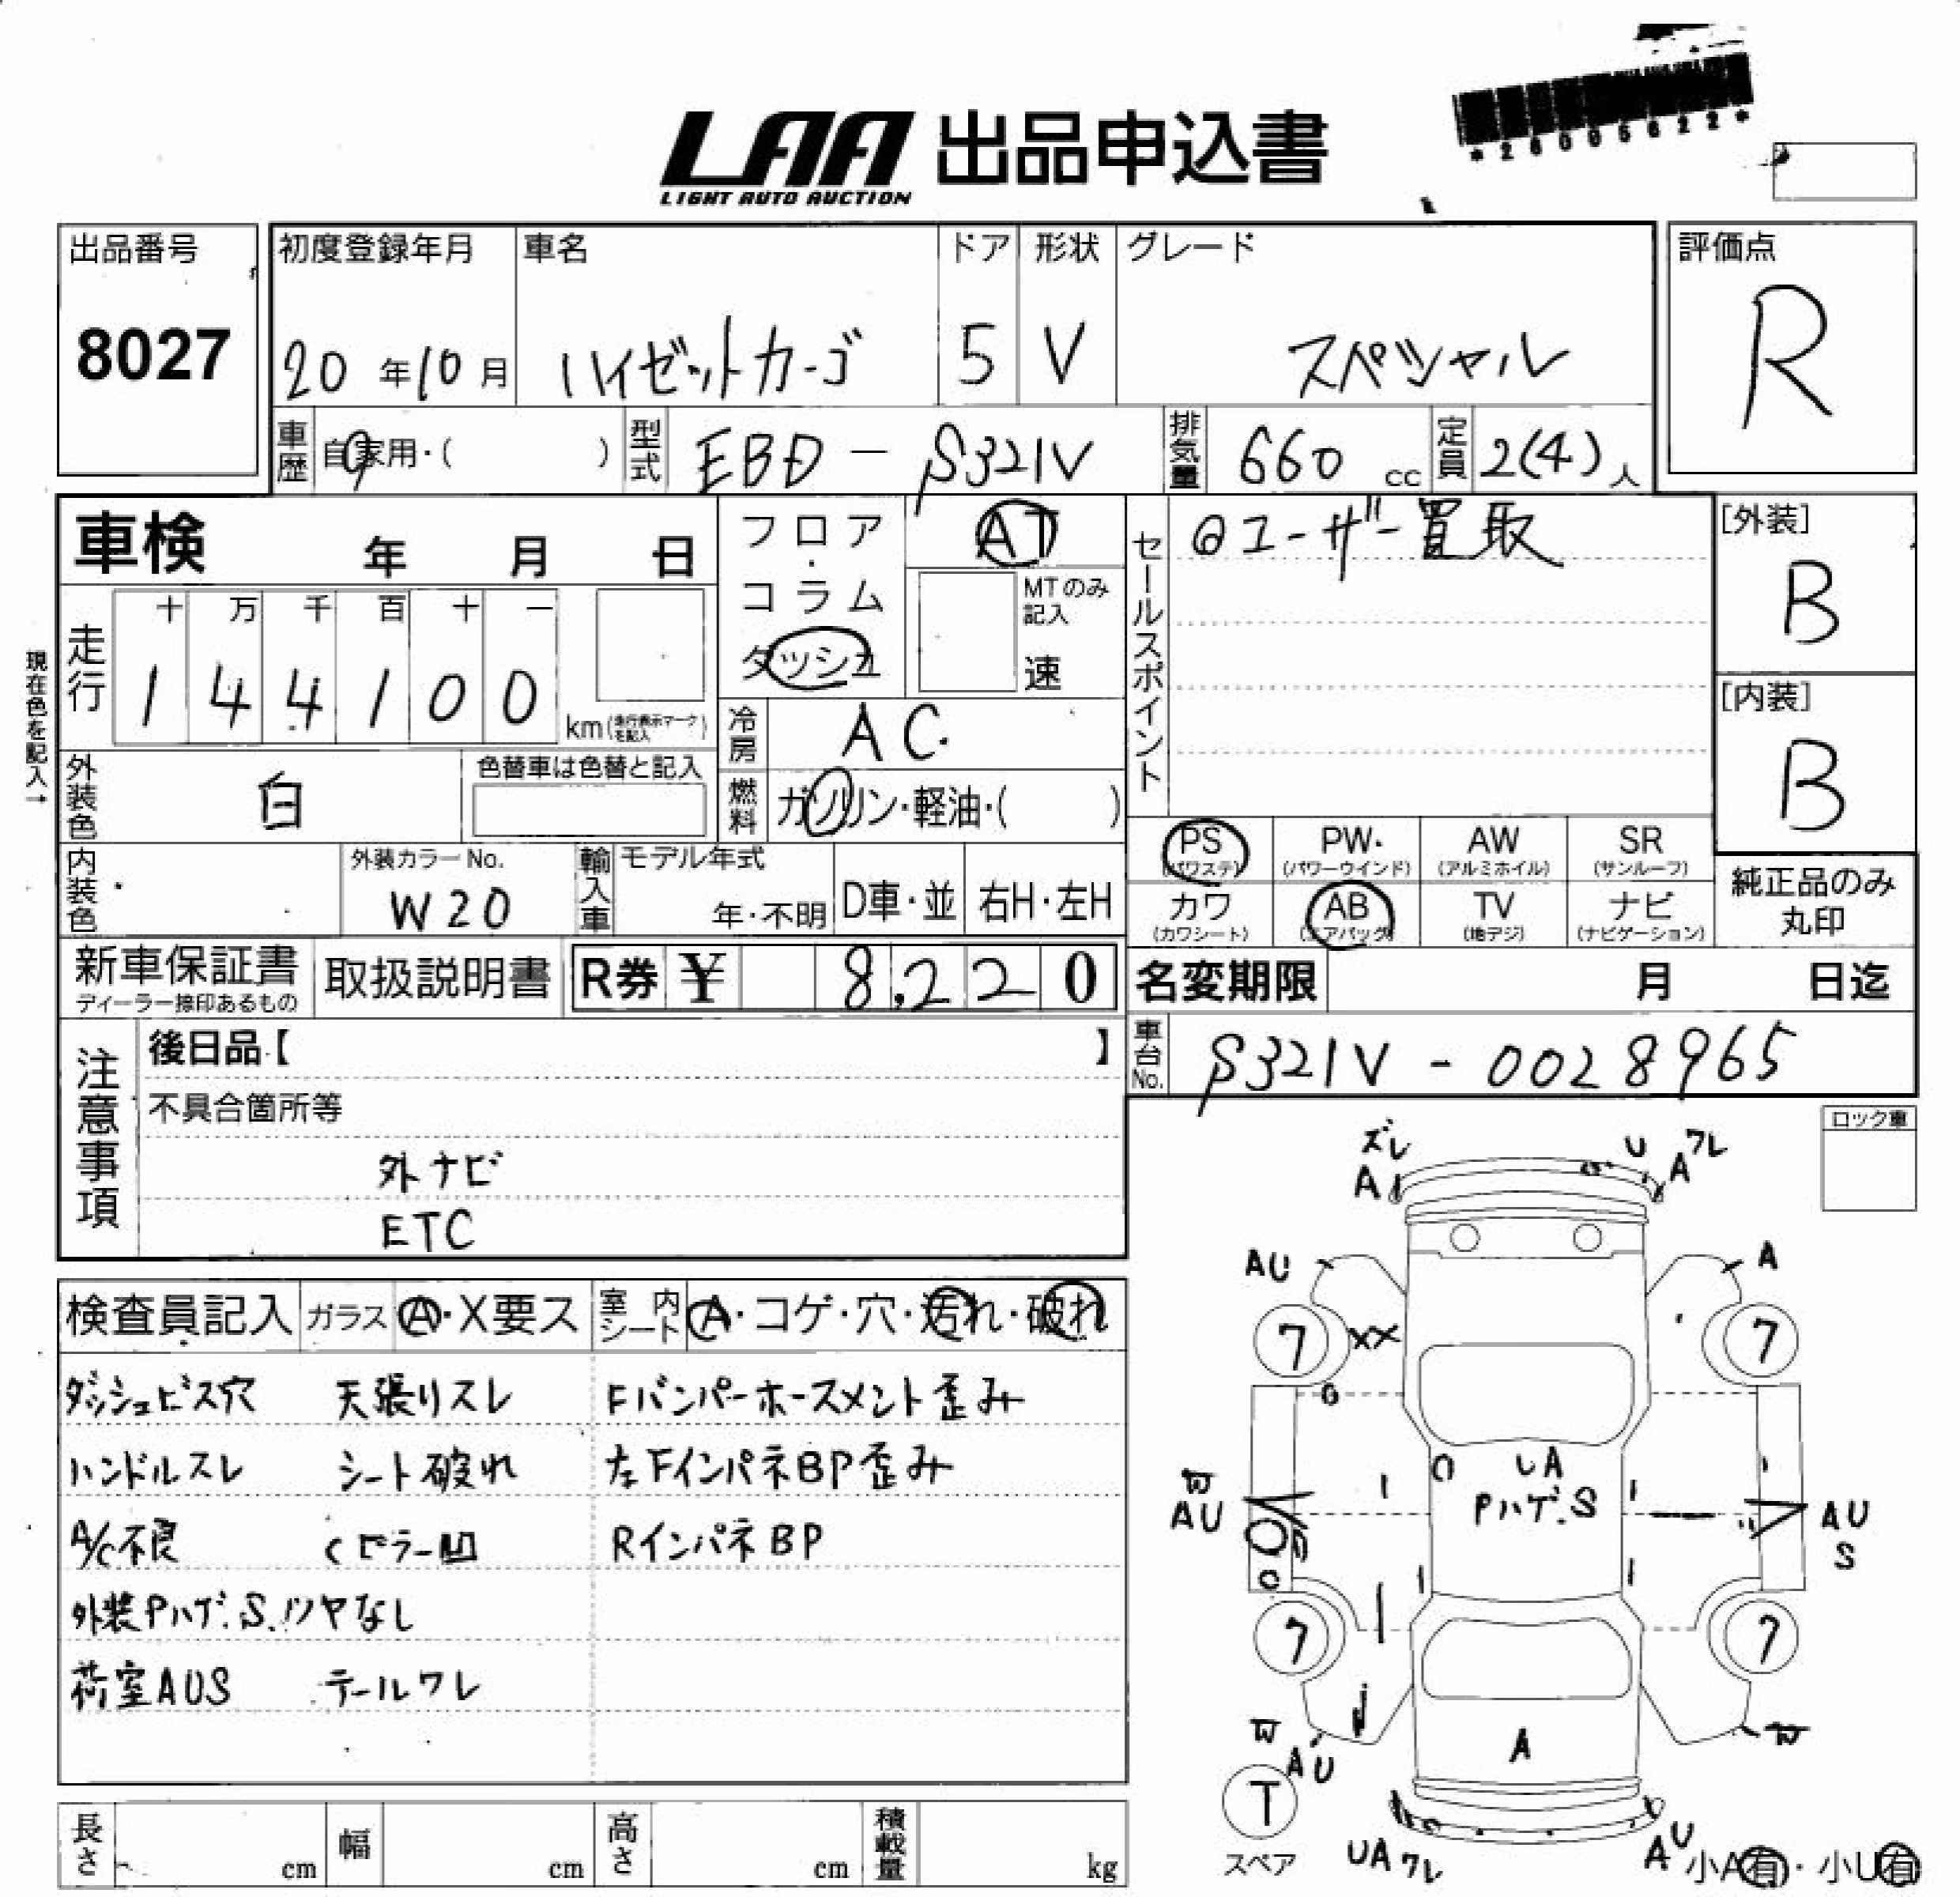 LAA 出品申込書
LIGHT AUTO AUCTION
*26005622*
出品番号
8027
初度登録年月 車名 ドア 形状 グレード
20年10月 ハイゼットカーゴ 5 V スペシャル
評価点
R
車歴 自家用・( ) 型式 EBD-S321V 排気量 660cc 定員 2(4)人
車検 年 月 日
フロア・コラム ダッシュ
AT
MTのみ記入
速
セールスポイント
◎ユーザー買取
[外装]
B
[内装]
B
現在色を記入→
走行 十 万 千 百 十 一
1 4 4 1 0 0 km(走行表示マークを記入)
冷房 AC
燃料 ガソリン・軽油・( )
外装色 白 色替車は色替と記入
内装色 外装カラーNo. W20
輸入車 モデル年式 年・不明 D車・並 右H・左H
PS (パワステ) PW (パワーウインド) AW (アルミホイル) SR (サンルーフ)
カワ (カワシート) AB (エアバッグ) TV (地デジ) ナビ (ナビゲーション)
純正品のみ丸印
新車保証書 ディーラー捺印あるもの 取扱説明書 R券 ¥ 8,220
名変期限 月 日迄
車台No. S321V-0028965
注意事項
後日品【 】
不具合箇所等
外ナビ
ETC
ロック車
検査員記入 ガラス A・X要ス 室内シート A・コゲ・穴・汚れ・破れ
ダッシュビス穴 天張りスレ Fバンパーホースメント歪み
ハンドルスレ シート破れ 左FインパネBP歪み
A/C不良 Cピラー凹 RインパネBP
外装Pハゲ.S.ツヤなし
荷室AUS テールワレ
ズレ
A
U
A ワレ
AU
A
7 XX 7
UA
Pハゲ.S
AU
AU
S
7 7
A
AU
T
スペア
UA ワレ
AU
小A有・小U有
長さ cm 幅 cm 高さ cm 積載量 kg